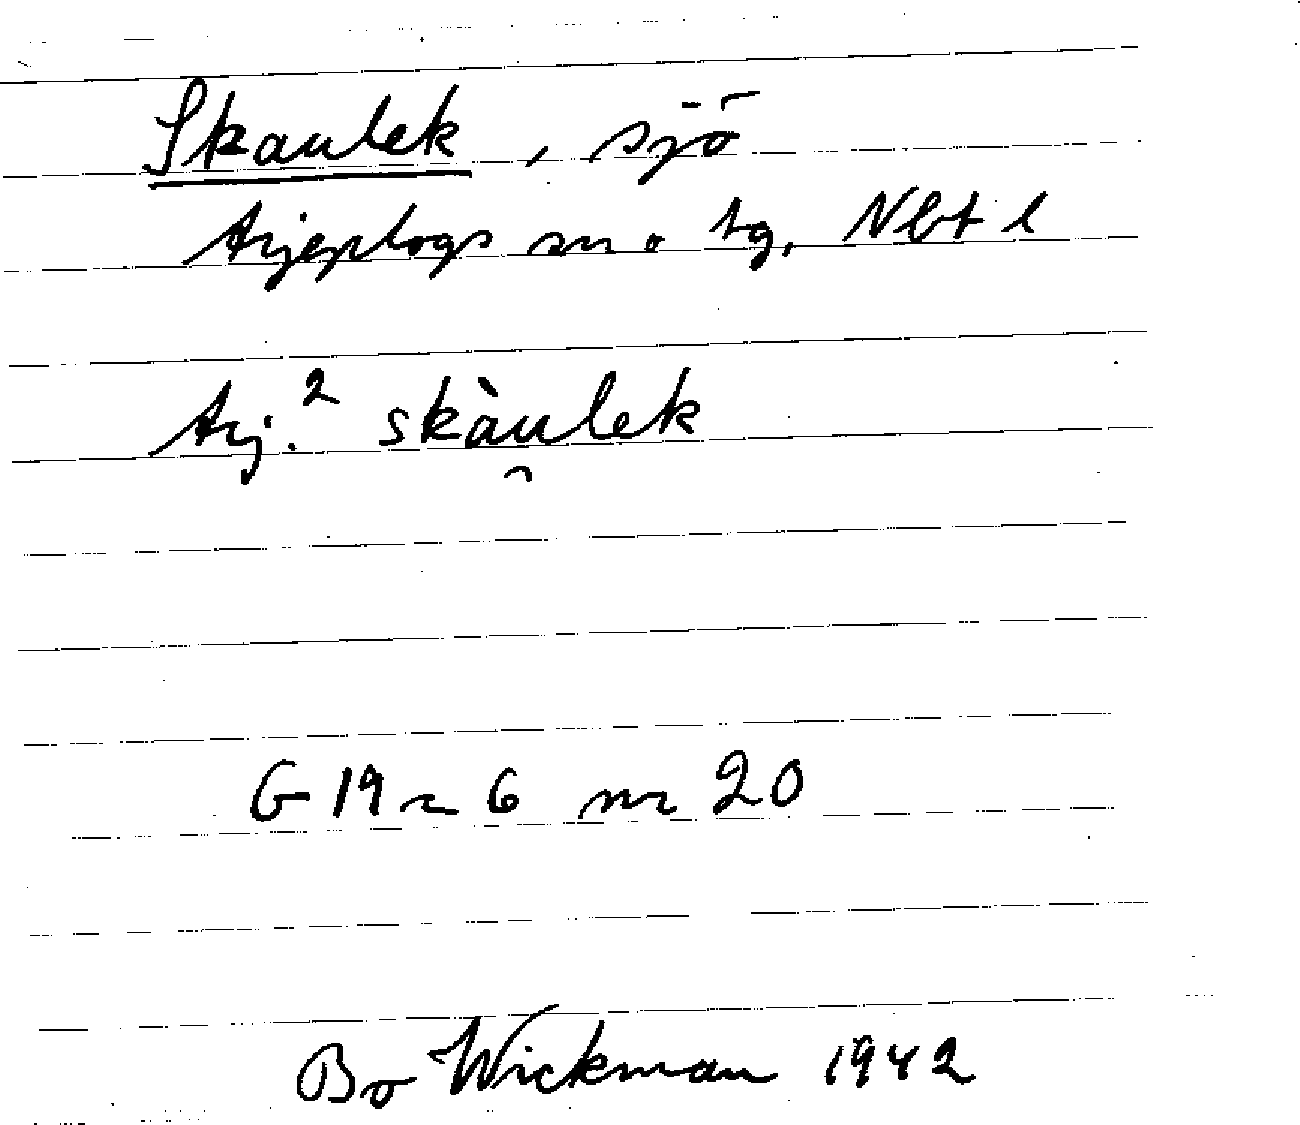 Skaulek, sjö
Arjeplogs sn o tg, Nbt l
Arj.² skàu̯lek
G 19 r 6 nr 20
Bo Wickman 1942